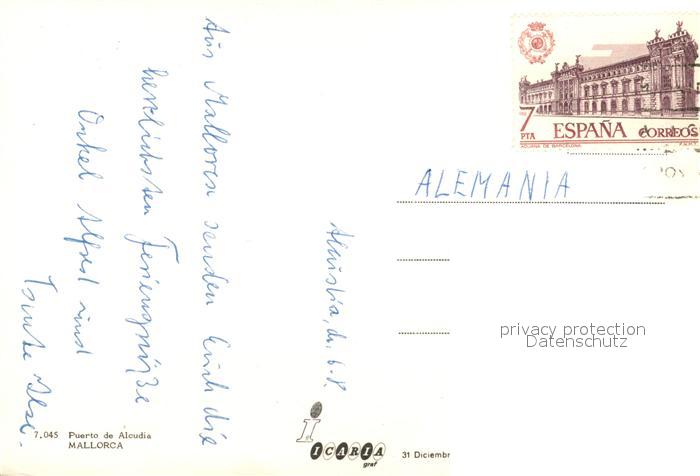 7
PTA
ESPAÑA
CORREOS
ADUANA DE BARCELONA
F.N.M.T.
ALEMANIA
Alcudia, d. 6.8.
Aus Mallorca senden Euch die
herzlichsten Feriengrüße
Onkel Alfred und
Tante Ilse.
privacy protection
Datenschutz
7.045 Puerto de Alcudia
MALLORCA
ICARIA
graf
31 Diciembr